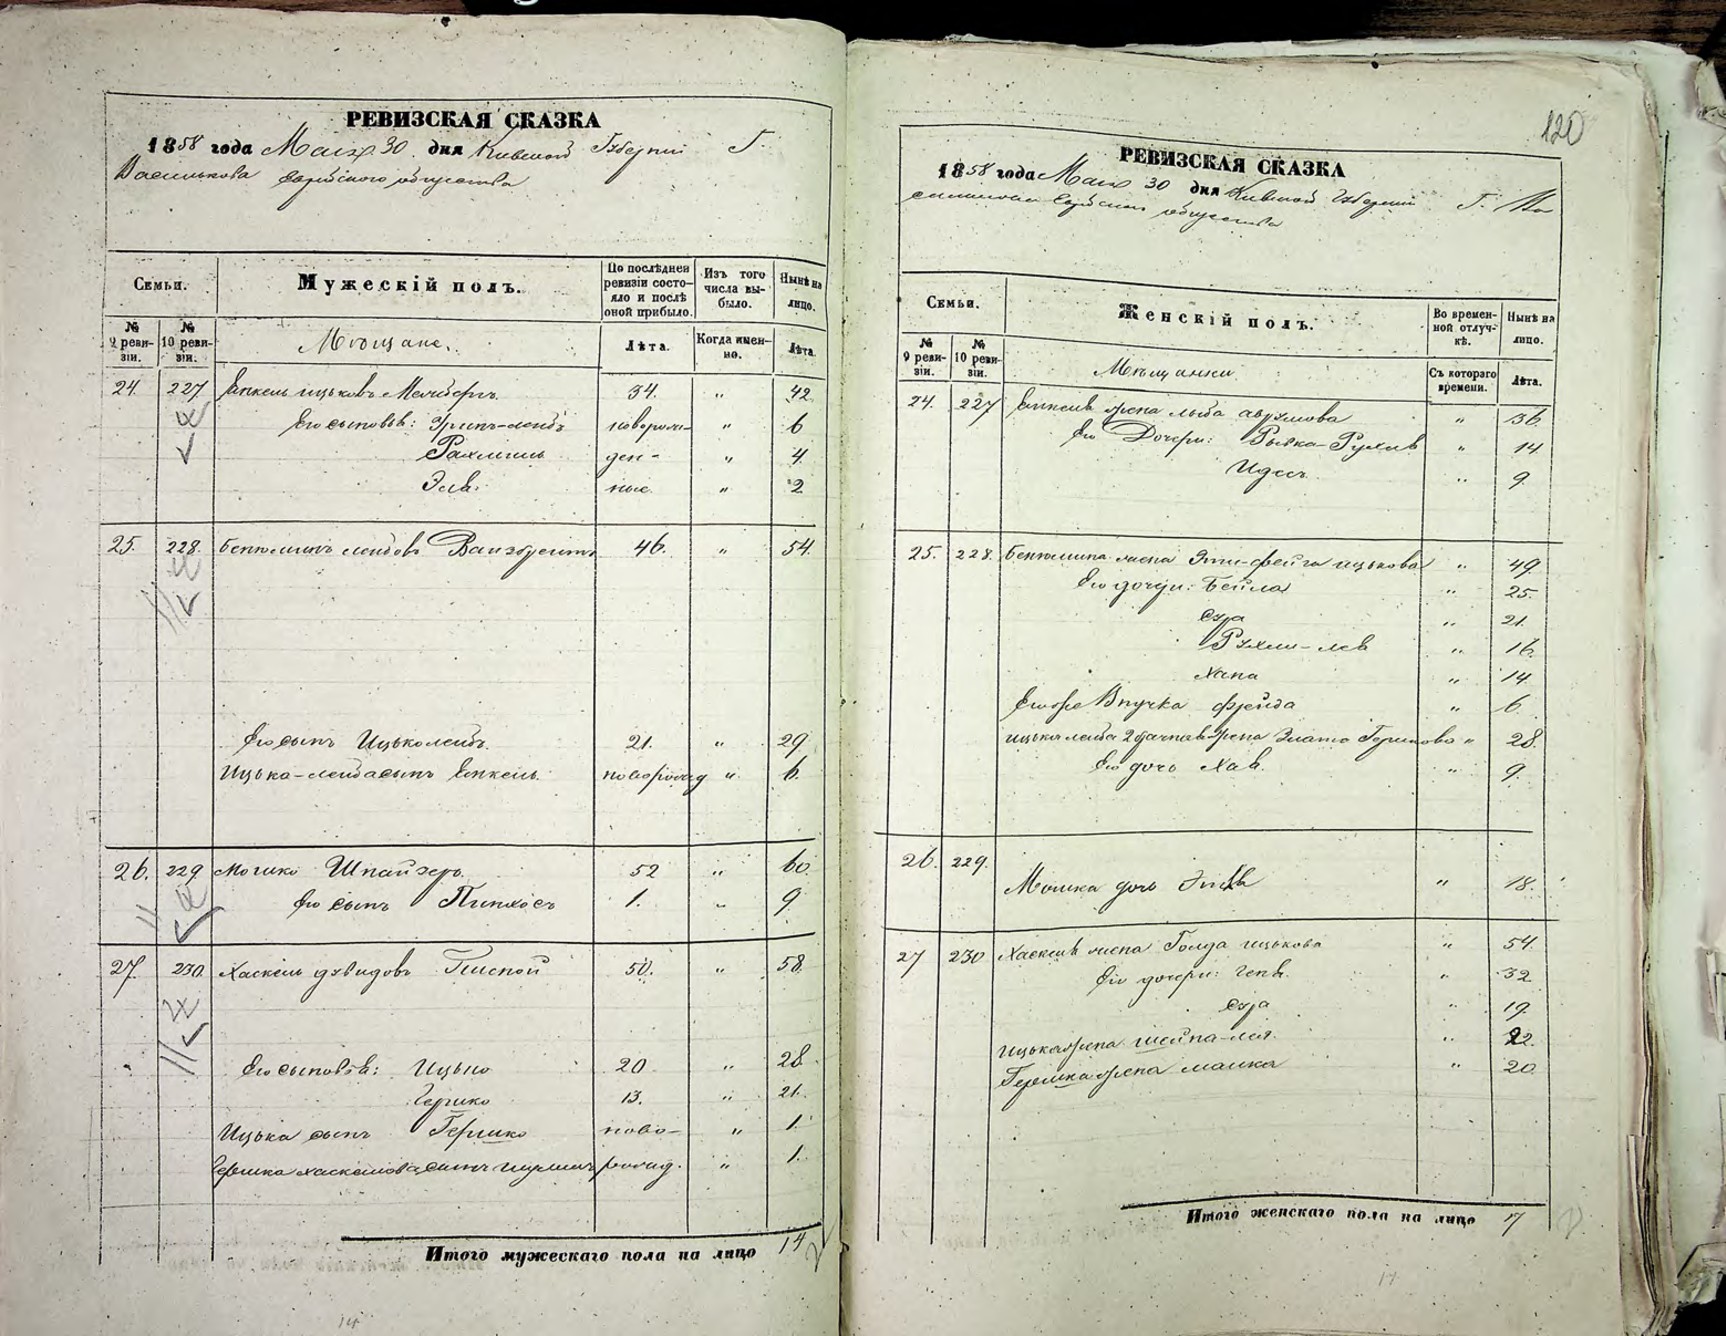 РЕВИЗСКАЯ СКАЗКА
1858 года Маія 30 дня Киевской Губерніи Г.
Василькова Еврейского общества
Семьи.
Мужескій полъ.
По послѣдней ревизіи состояло и послѣ оной прибыло.
Изъ того числа выбыло.
Нынѣ на лицо.
№ 9 ревизіи.
№ 10 ревизіи.
Мѣщане.
Лѣта.
Когда именно.
Лѣта.
24. 227 Янкель Ицьковъ 34. " 42
Его сыновья: новорож- " 6
Рахмиль ден- " 4
Эля. ные. " 2
25. 228. Бенюминъ Лейбовъ 46. " 54.
Его сынъ Ицько Лейбъ. 21. " 29
Ицька-Лейба сынъ Янкель. новорожд " 6.
26. 229 Мошко Шпайзеръ. 52 " 60.
Его сынъ Пинхосъ 1. " 9
27. 230. Хаскель Дувидовъ 50. " 58.
Его сыновья: Ицько 20 " 28
Гершко 13. " 21.
Ицька сынъ Гершко ново- " 1.
Гершка Хаскелова сынъ рожд. " 1.
Итого мужескаго пола на лицо 14
14
120
РЕВИЗСКАЯ СКАЗКА
1858 года Маія 30 дня Киевской Губерніи Г. Ва
силькова Еврейского общества
Семьи.
Женскій полъ.
Во временной отлучкѣ.
Нынѣ на лицо.
№ 9 ревизіи.
№ 10 ревизіи.
Мѣщанки
Съ котораго времени.
Лѣта.
24. 227 Янкеля жена Лыба Аврумова " 36.
Его Дочери: Рывка-Рухля " 14
Идесъ " 9
25. 228. Бенюмина жена Эти-Фейга Ицькова " 49
Его дочери: Бейла " 25.
Сура " 21.
Рухли-Лея " 16.
Хана " 14
Егоже Внучка Фрейда " 6.
Ицька Лейба 2 брачная жена Злата Гершкова " 28.
Его дочь Хая. " 9.
26. 229.
Мошка дочь " 18.
27 230 Хаскеля жена Голда Ицькова " 54.
Его дочери: Геня. " 32
Сура " 19.
Ицька жена Шейна-Лея. " 22.
Гершка жена Малка " 20.
Итого женскаго пола на лицо 17
17